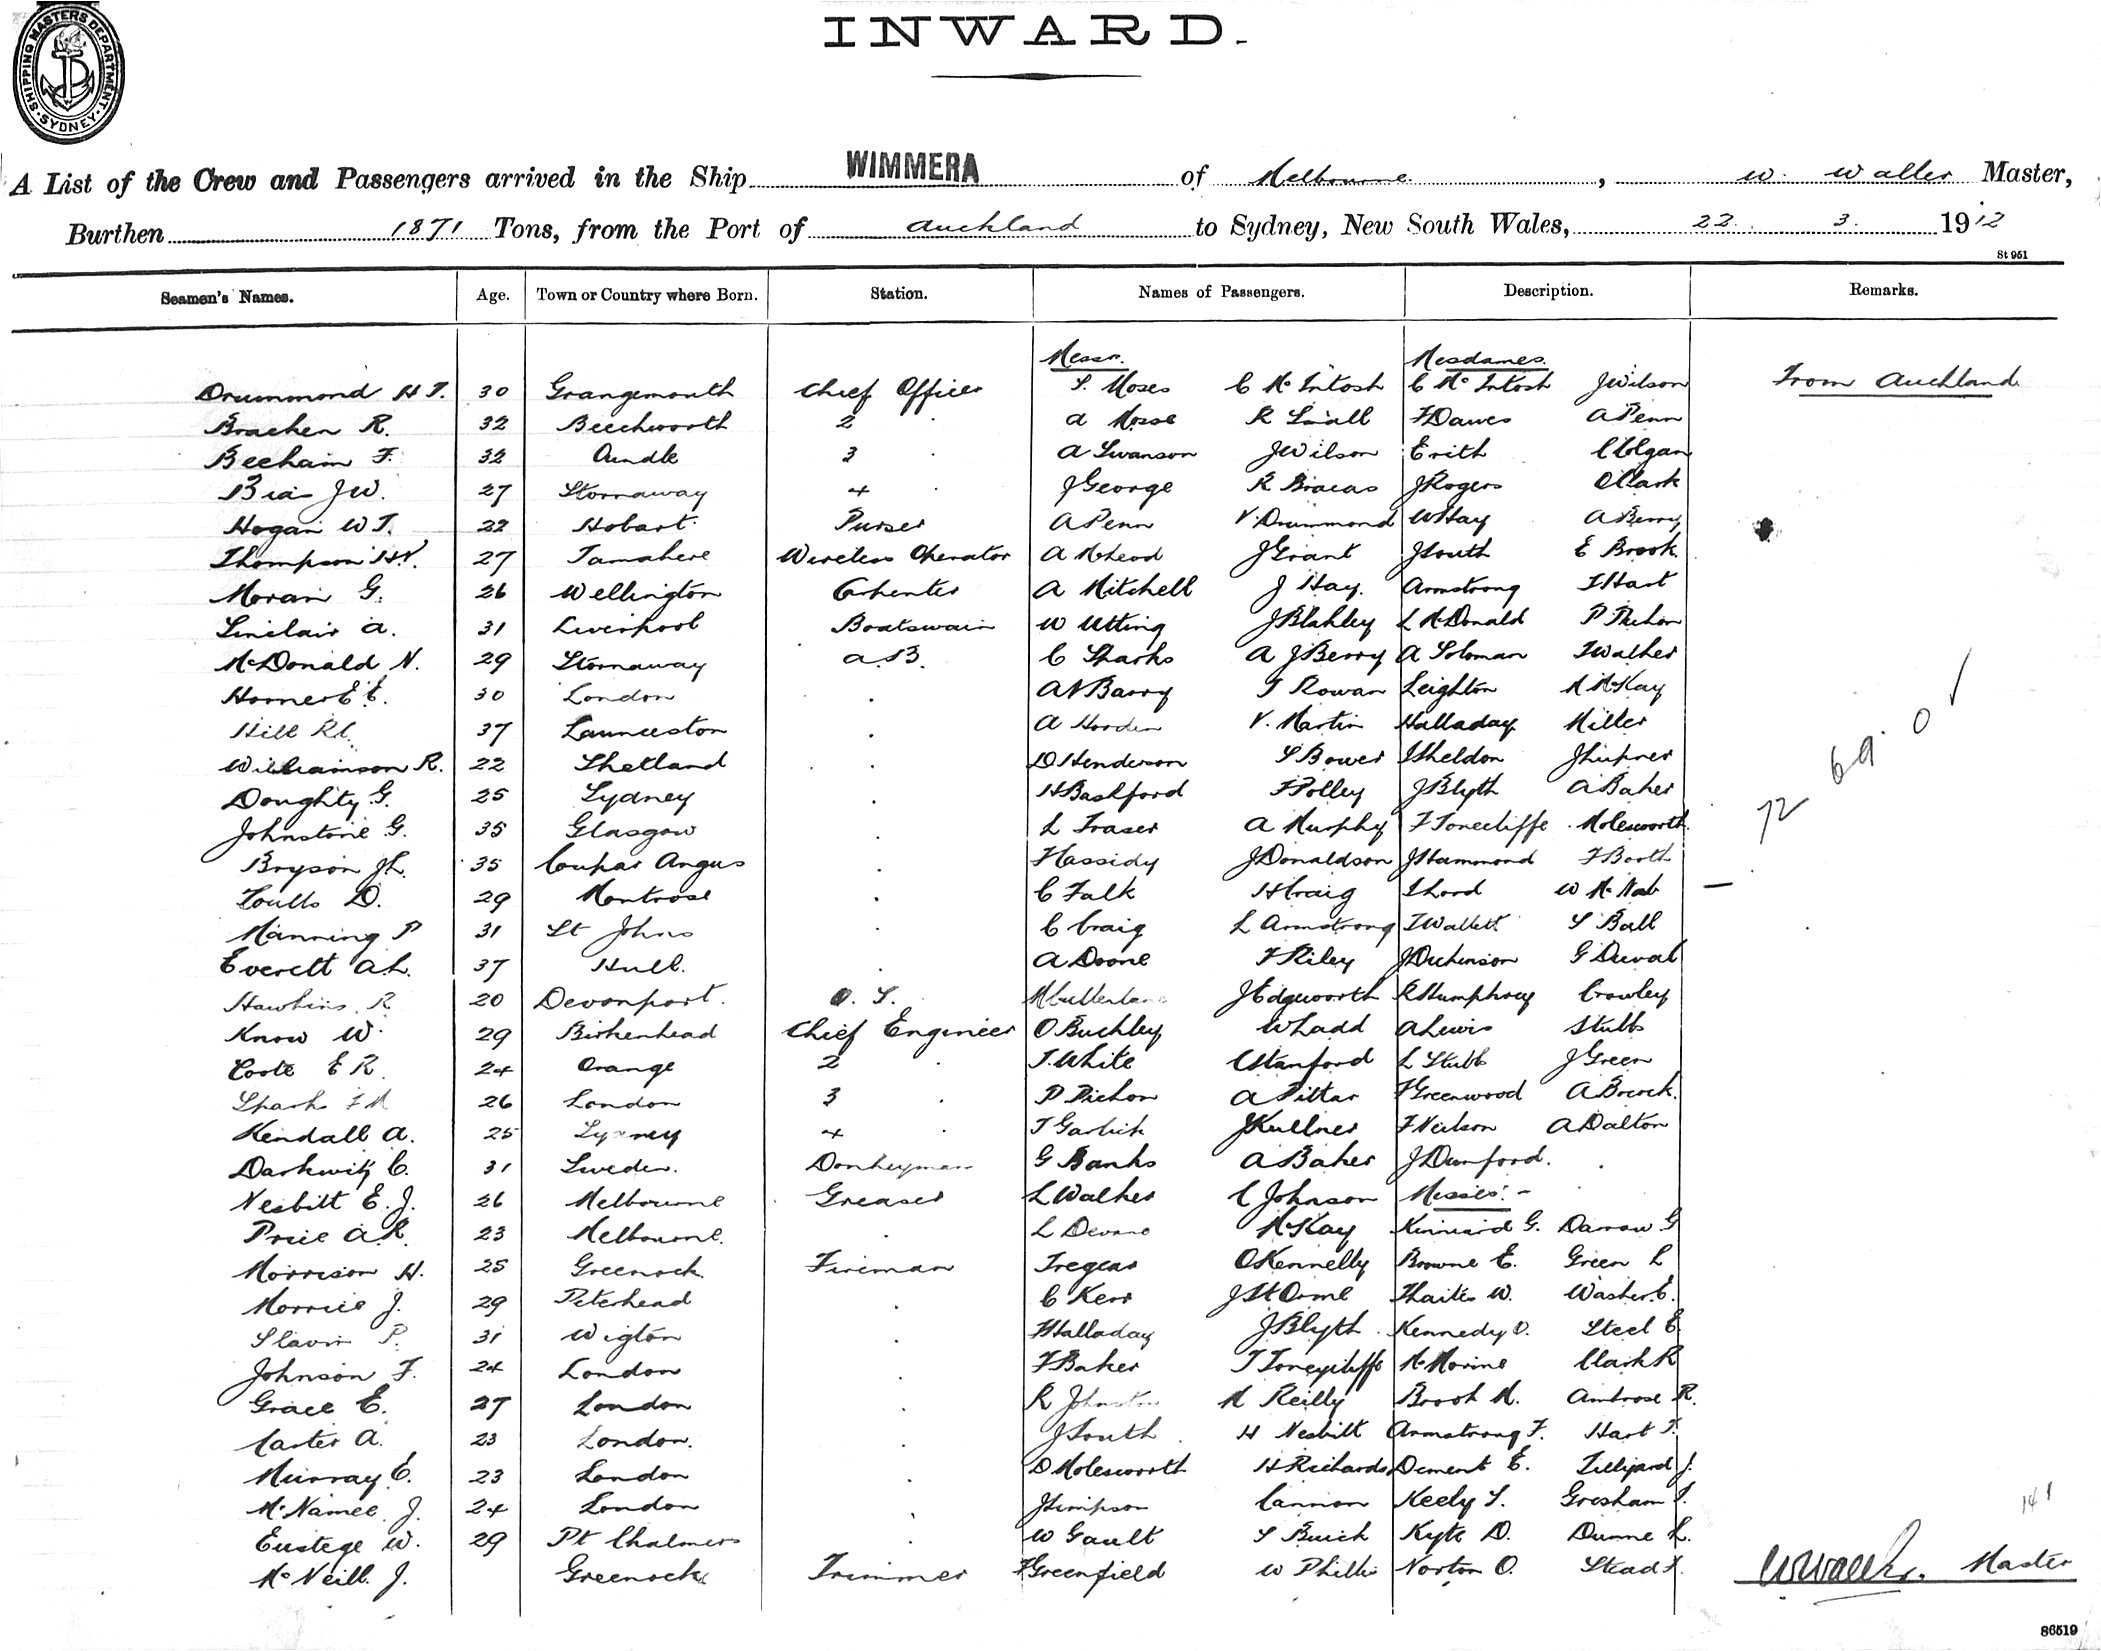 SHIPPING MASTERS DEPARTMENT
SYDNEY
INWARD.
A List of the Crew and Passengers arrived in the Ship WIMMERA of Melbourne, W. Waller Master,
Burthen 1871 Tons, from the Port of Auckland to Sydney, New South Wales, 22. 3. 1912
St 951
Seamen's Names. Age. Town or Country where Born. Station. Names of Passengers. Description. Remarks.
Messrs. Mesdames.
Drummond H T. 30 Grangemouth Chief Officer S. Moses C McIntosh C McIntosh J Wilson From Auckland
Bracken R. 32 Beechworth 2 A Mosse R Small F Dawes A Penn
Beeham F. 32 Oundle 3 A Swanson J Wilson Erith C Colgan
J W. 27 Stornaway 4 J George R J Rogers C Clark
Hogan W T. 22 Hobart Purser A Penn V. Drummond W Hay A Berry
Thompson H V. 27 Tamahere Wireless Operator A McLeod J Grant J South E Brook
Moran G. 26 Wellington Carpenter A Mitchell J Hay. Armstrong T Hart
Sinclair A. 31 Liverpool Boatswain W Utting J Blakley L McDonald P
McDonald N. 29 Stornaway A.B. C Sparks A J Berry A Soloman T Walker
Horner E E. 30 London A V Barry T Rowan Leighton M McKay
Hill R C. 37 Launceston A Horden V. Martin Halladay Miller
Williamson R. 22 Shetland D Henderson S Bower T Sheldon J
Doughty G. 25 Sydney H Bashford F Polley J Blyth A Baker
Johnstone G. 35 Glasgow L Fraser A Murphy F Molesworth
Bryson J L. 35 Coupar Angus F Cassidy J Donaldson J Hammond F Booth
Coutts D. 29 Montrose C Falk H Craig T Lord W McNab
Manning P 31 St Johns C Craig L Armstrong T Wallett S Ball
Everett A L. 37 Hull. A Doone F Riley J Dickinson G Duval
Hawkins R 20 Devonport. O. S. J Edgeworth R Humphrey Crowley
Know W. 29 Birkenhead Chief Engineer O Buckley W Ladd A Lewis Stubbs
Coote E R. 24 Orange 2 T. White C Stanford L Stubbs J Green
Spark F M 26 London 3 P Pichon A Pittar F Greenwood A Brocock.
Kendall A. 25 Sydney 4 T Garlick J Kullner F Neilson A Dalton
Darkwitz C. 31 Sweden. Donkeyman G Banks A Baker J Dunford.
Nesbitt E. J. 26 Melbourne Greaser L Walker C Johnson Misses:-
Price A R. 23 Melbourne. L Devane McKay Kinnard G. Darrow G
Morrison H. 25 Greenock Fireman Tregear O Kennelly Browne E. Green L
Morrice J. 29 Peterhead C Kerr J St Orme Thaites W. Washer E.
Slavin P. 31 Wigton F Halladay J Blyth Kennedy O. Steel E
Johnson F. 24 London F Baker T McMorine Clark R
Grace E. 27 London R Johnston M Reilly Brook M. Ambrose R.
Carter A. 23 London. J South H Nesbitt Armstrong F. Hart F.
Murray E. 23 London D Molesworth H Richards Dement E. Tillyard J.
McNamee J. 24 London J Simpson Cannon Keely S. Gresham S.
Eustege W. 29 Pt Chalmers W Gault S Buick Kyte D. Dunne L.
McNeill J. Greenock Trimmer F Greenfield W Phillis Norton O. Stead F.
72 69. 0
141
W Waller. Master
86519